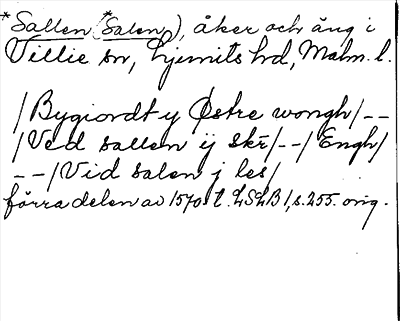 *Sallen (*Salen), åker och äng i
Villie sn, Ljunits hd, Malm. l.
/Bygiordt y Østre wongh/--
/Ved sallen ij skr/--/Engh/
--/Vid salen j les/
förra delen av 1570 t. LSLB 1, s. 255. orig.